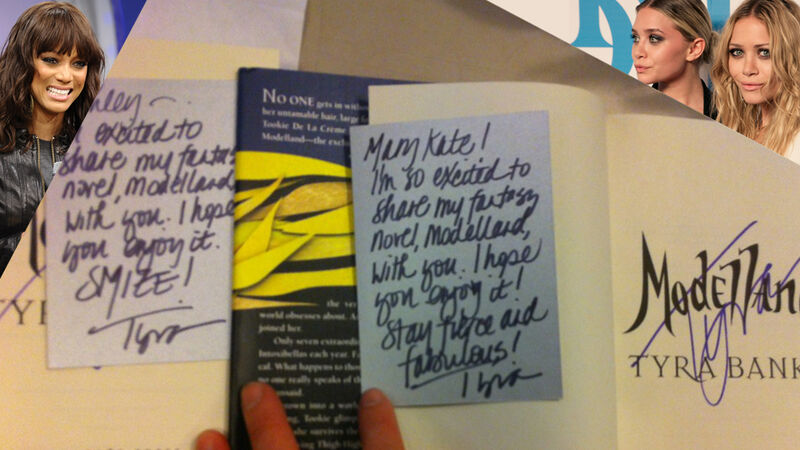 excited to
share my fantasy
novel, Modelland,
with you. I hope
you enjoy it.
SMIZE!
Tyra
NO ONE gets in
her untamable hair, large
Tookie De La Crème
Modelland—the
the
world obsesses about.
joined her.
Only seven
Intoxibellas each year.
What happens to
no one really speaks of
into a
Tookie
she survives the
Thigh-High
Mary Kate!
I'm so excited to
share my fantasy
novel, Modelland,
with you. I hope
you enjoy it!
Stay fierce and
fabulous!
Tyra
Modellan
TYRA BANK